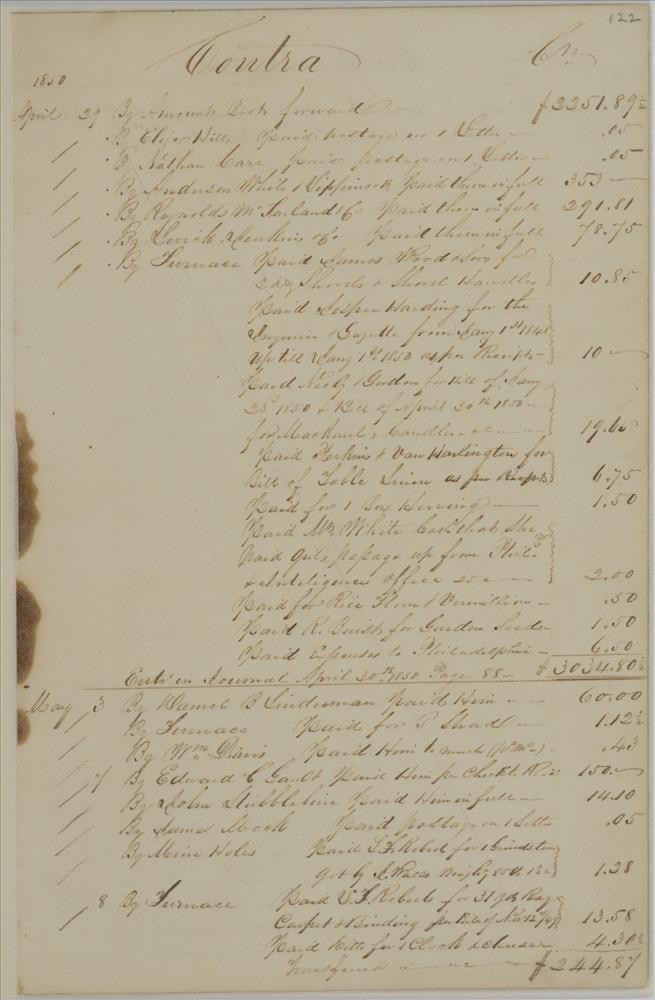 122
Contra Cr
1850
April 29 By Amount Brot forward $2251.89½
" By Elija Hill Paid postage on 1 Letter .05
" By Nathan Care Paid postage on 1 Letter .05
" By Anderson White & Lippincott Paid them in full 353 —
" By Reynolds McFarland & Co Paid them in full 291.81
" By Lovick Jenkins & Co Paid them in full 78.75
" By Furnace Paid James Wood & Sons for
2 Doz Shovels & Shovel Handles 10.85
Paid Jesper Harding for the
Inquirer & Gazette from Jany 1st 1848
up till Jany 1st 1850 as per Receipt 10 —
Paid Neely & Gordon for Bill of Jany
25 1850 & Bill of April 20th 1850
for Mackarel, Candles &c 19.60
Paid Perkins & Van Harlington for
Bill of Table Linen as per Receipt 6.75
Paid for 1 Box Herring 1.50
Paid Mrs White Cash that she
paid Girls passage up from Phila
& Inteligence office 25c 2.00
Paid for Rice Flour & Vermillion .50
Paid R. Buist for Garden Seeds 1.50
Paid Expenses to Philadelphia 6.50
Entr in Journal April 20th 1850 Page 88 $3034.80½
May 3 By Daniel B Linderman Paid Him 60.00
" By Furnace Paid for 5 Shad 1.12½
" By Wm Davis Paid Him to much .43
" 7 By Edward C Gault Paid Him per Check 150. —
" By John Stibbleline Paid Him in full 14.10
" By James Mock Paid postage on 1 Letter .05
" By Mine Holes Paid S. F. Roberts for 1 Grindstone
got by J. Wallis weighg 85 lb 1½ c 1.28
" 8 By Furnace Paid S. F. Roberts for 31 yds Rag
Carpet & Binding per Bill of 13.58
Paid for 1 Clock 4.30½
Transferred $244.87